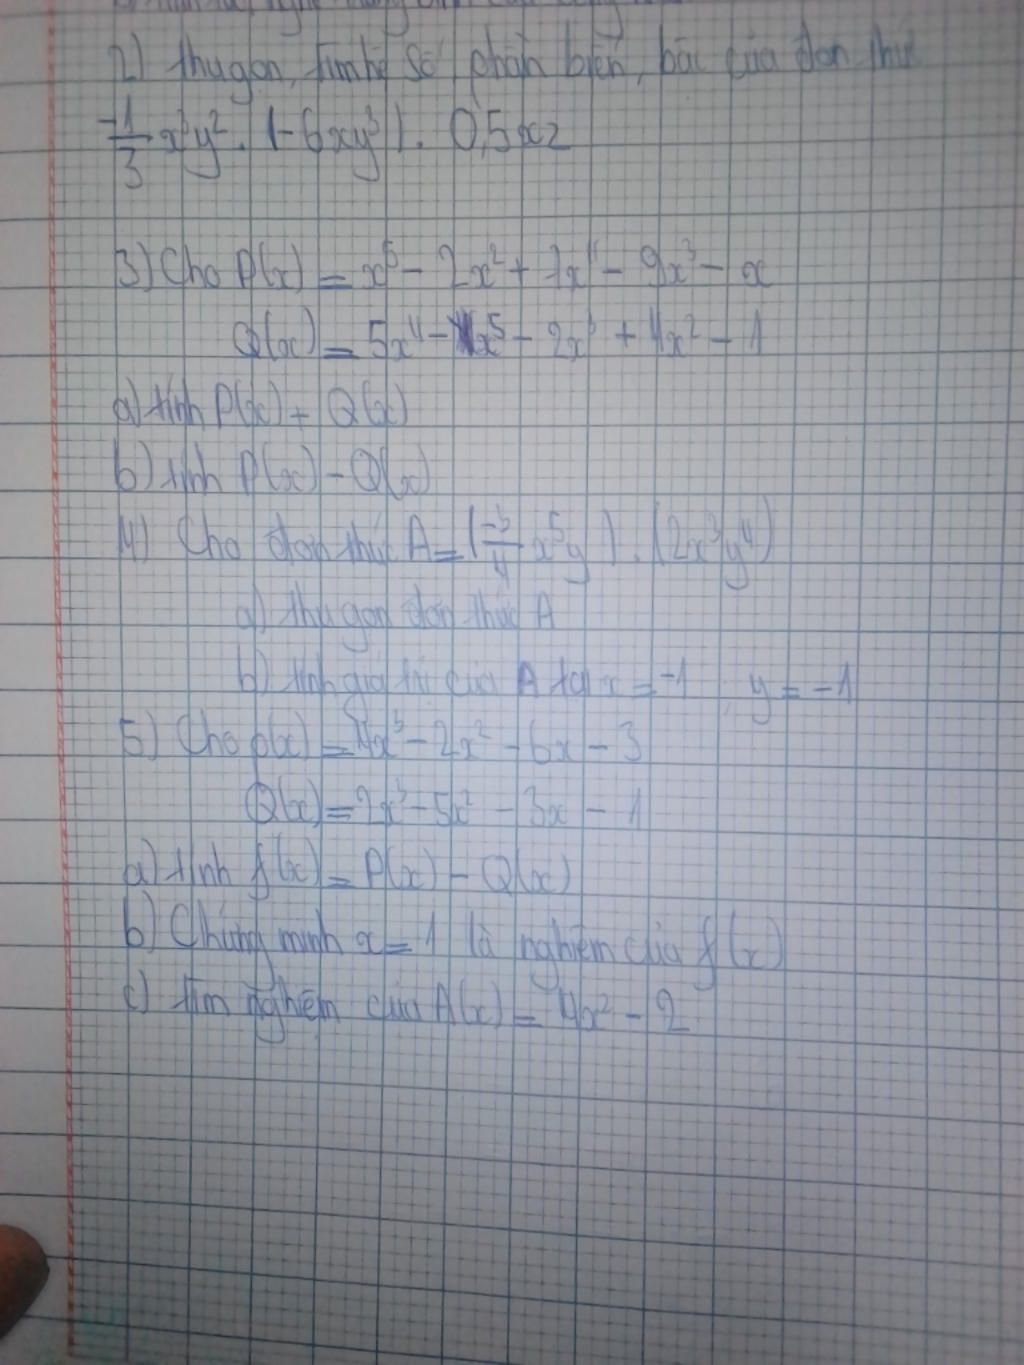 2) thu gọn, tìm hệ số phần biến, bậc của đơn thức
-1/3 x³y². (-6xy³). 0,5xz
3) Cho P(x) = x⁵ - 2x² + 7x⁴ - 9x³ - x
Q(x) = 5x⁴ - x⁵ - 2x³ + 4x² - 1
a) tính P(x) + Q(x)
b) tính P(x) - Q(x)
4) Cho đơn thức A = (-3/4 x⁵y). (2x³y⁴)
a) thu gọn đơn thức A
b) tính giá trị của A tại x = -1, y = -1
5) Cho p(x) = 4x³ - 2x² - 6x - 3
Q(x) = 2x³ - 5x² - 3x - 1
a) tính f(x) = P(x) - Q(x)
b) Chứng minh x = 1 là nghiệm của f(x)
c) tìm nghiệm của A(x) = 4x² - 2